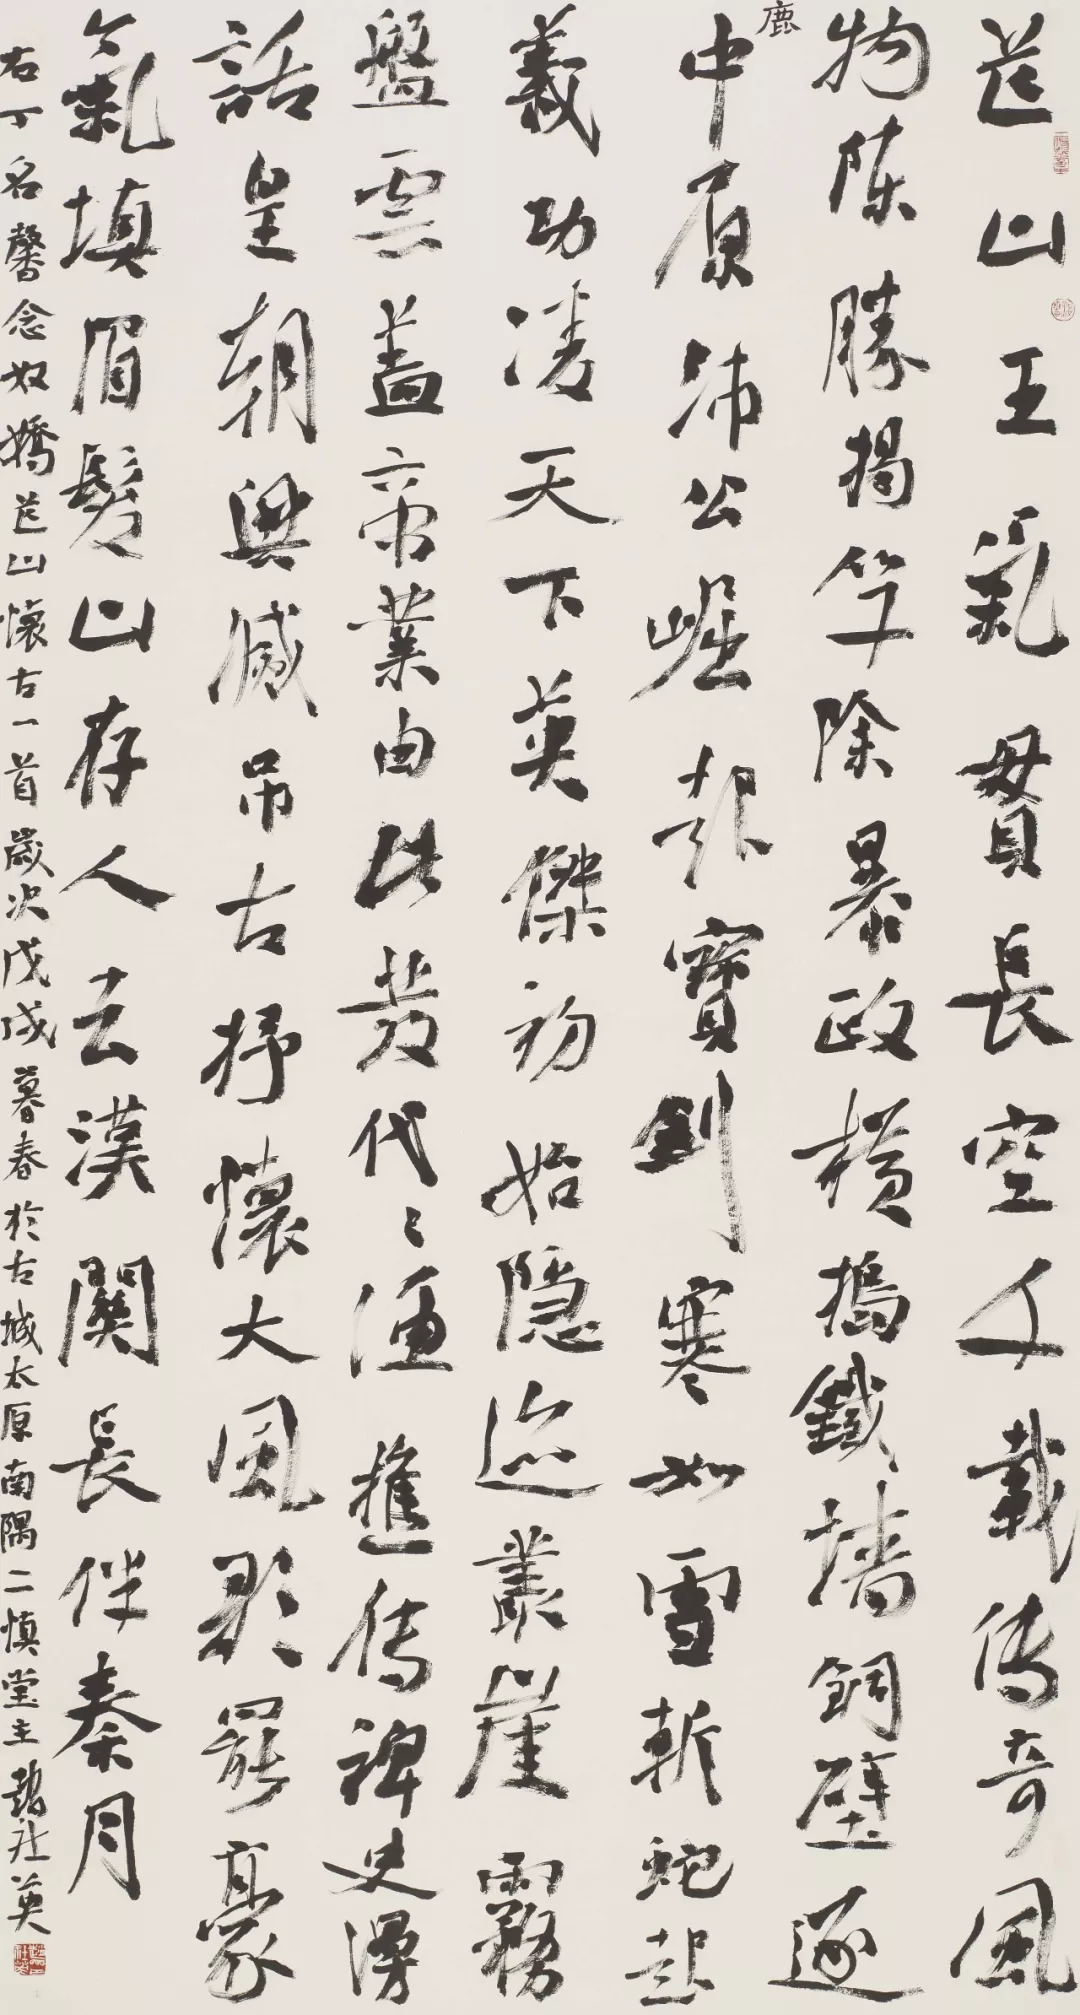 芒山王氣貫長空文載传奇風
物陈勝揭竿除暴政横搗鐵墙銅壁逐
鹿
中原沛公崛起寶劍寒如雪斬蛇起
義功凌天下英傑初始隐迹叢崖霧
盤雲蓋帝業由此發代〻漁樵传裨史漫
話皇朝興滅吊古抒懷大風歌罷豪
氣填眉髮山存人去漢關長伴秦月
右丁名馨念奴嬌芒山懷古一首歲次戊戌暮春於古城太原南隅二慎堂主趙社英